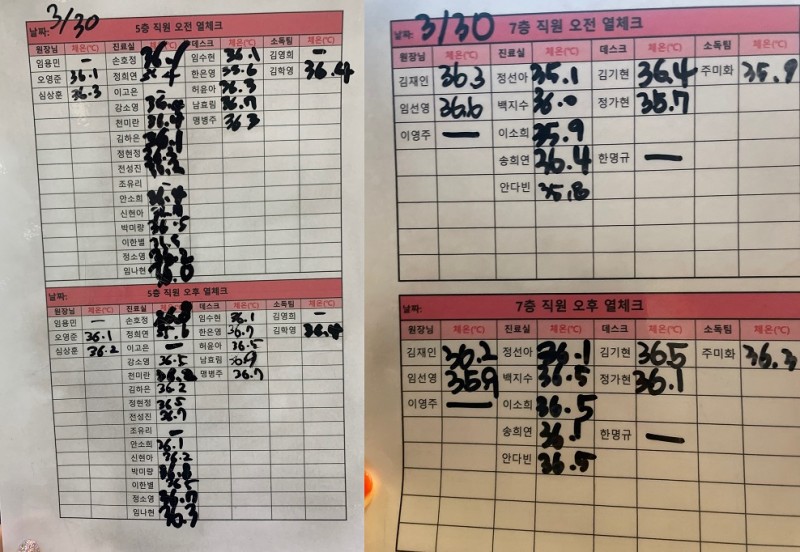 3/30
5층 직원 오전 열체크
날짜:
원장님 체온(℃) 진료실 체온(℃) 데스크 체온(℃) 소독팀 체온(℃)
임용민 — 손호정 임수현 36.1 김영희 —
오영준 36.1 정희연 한은영 35.6 김학영 36.4
심상훈 36.3 이고은 — 허윤아 36.3
강소영 남효림 36.7
천미란 36.4 맹병주 36.3
김하은 36.1
정현정
전성진
조유리 —
안소희
신현아
박미량 36.5
이한별
정소영
임나현
5층 직원 오후 열체크
날짜:
원장님 체온(℃) 진료실 체온(℃) 데스크 체온(℃) 소독팀 체온(℃)
임용민 — 손호정 임수현 36.1 김영희 —
오영준 36.1 정희연 한은영 36.7 김학영 36.4
심상훈 36.2 이고은 — 허윤아 36.5
강소영 36.5 남효림
천미란 맹병주 36.7
김하은 36.2
정현정 36.5
전성진 36.7
조유리 —
안소희 36.1
신현아 36.2
박미량
이한별 36.5
정소영 36.7
임나현 36.3
3/30
7층 직원 오전 열체크
날짜:
원장님 체온(℃) 진료실 체온(℃) 데스크 체온(℃) 소독팀 체온(℃)
김재인 36.3 정선아 35.1 김기현 36.4 주미화 35.9
임선영 36.6 백지수 36.0 정가현 35.7
이영주 — 이소희 35.9
송희연 36.4 한명규 —
안다빈 35.8
7층 직원 오후 열체크
날짜:
원장님 체온(℃) 진료실 체온(℃) 데스크 체온(℃) 소독팀 체온(℃)
김재인 36.2 정선아 36.1 김기현 36.5 주미화 36.3
임선영 35.9 백지수 36.5 정가현 36.1
이영주 — 이소희 36.5
송희연 한명규 —
안다빈 36.5